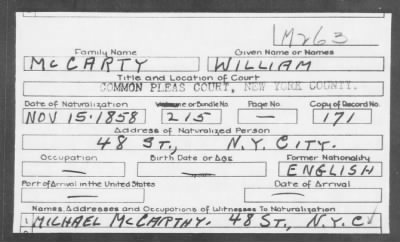 LM263
Family Name Given Name or Names
McCARTY WILLIAM
Title and Location of Court
COMMON PLEAS COURT, NEW YORK COUNTY.
Date of Naturalization Volume or Bundle No. Page No. Copy of Record No.
NOV 15·1858 215 — 171
Address of Naturalized Person
48 ST., N.Y. CITY.
Occupation Birth Date or Age Former Nationality
— — ENGLISH
Port of Arrival in the United States Date of Arrival
— —
Names, Addresses and Occupations of Witnesses To Naturalization
1 MICHAEL McCARTHY. 48 ST., N.Y.C